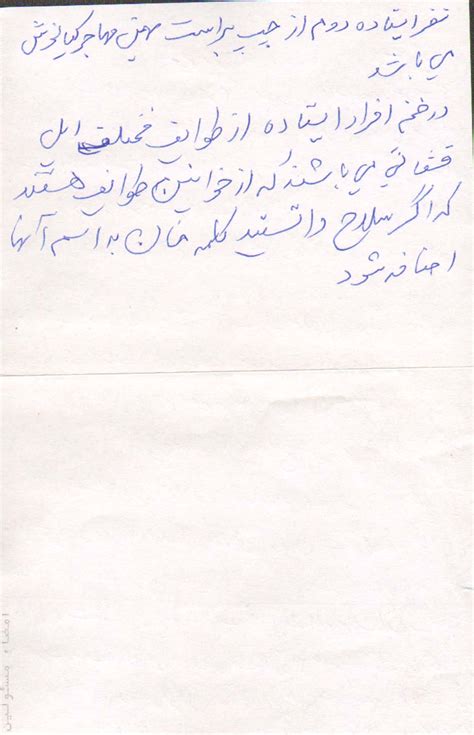 نفر ایستاده دوم از چپ به راست بهمن مهاجر کیانوش
می باشد
در ضمن افراد ایستاده از طوایف مختلف ایل
قشقائی می باشند که از خوانین طوایف هستند
که اگر سلاح دانستید کلمه خان به اسم آنها
اضافه شود
امضاء مسئولین